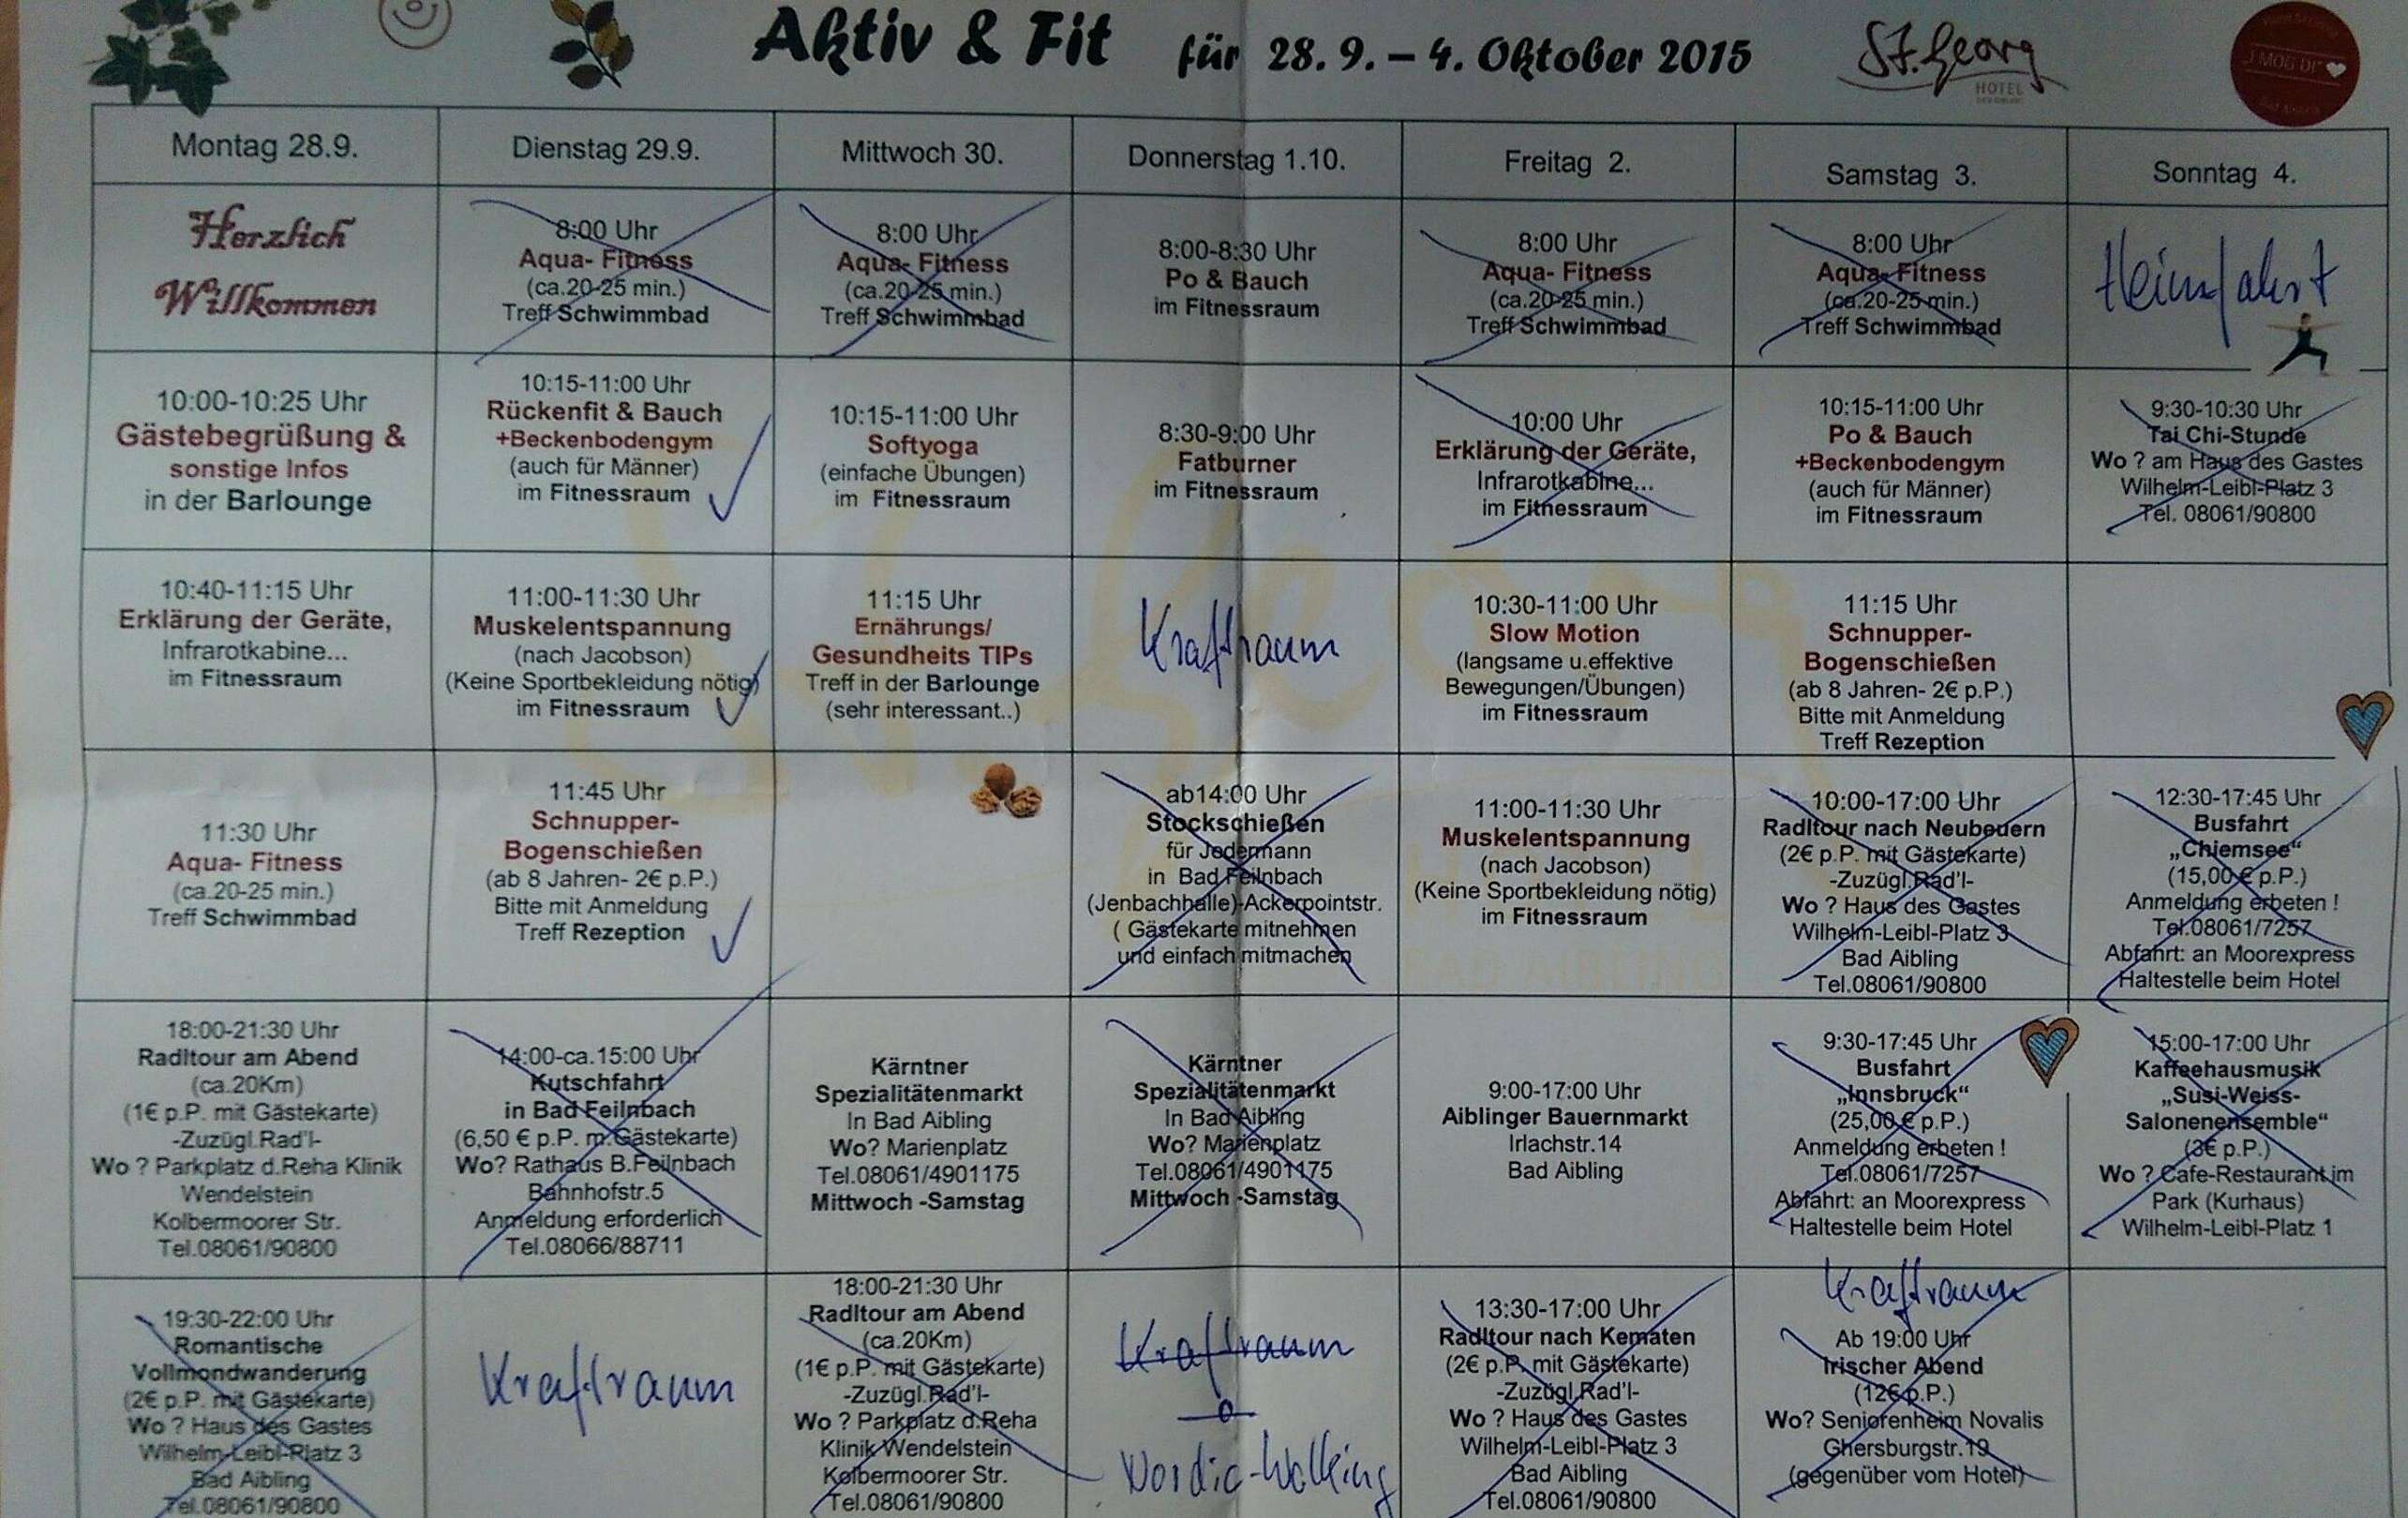 Aktiv & Fit für 28. 9. – 4. Oktober 2015
St. Georg
HOTEL
I MOG DI
Montag 28.9.
Dienstag 29.9.
Mittwoch 30.
Donnerstag 1.10.
Freitag 2.
Samstag 3.
Sonntag 4.
Herzlich
Willkommen
8:00 Uhr
Aqua- Fitness
(ca.20-25 min.)
Treff Schwimmbad
8:00 Uhr
Aqua- Fitness
(ca.20-25 min.)
Treff Schwimmbad
8:00-8:30 Uhr
Po & Bauch
im Fitnessraum
8:00 Uhr
Aqua- Fitness
(ca.20-25 min.)
Treff Schwimmbad
8:00 Uhr
Aqua- Fitness
(ca.20-25 min.)
Treff Schwimmbad
Heimfahrt
10:00-10:25 Uhr
Gästebegrüßung &
sonstige Infos
in der Barlounge
10:15-11:00 Uhr
Rückenfit & Bauch
+Beckenbodengym
(auch für Männer)
im Fitnessraum
10:15-11:00 Uhr
Softyoga
(einfache Übungen)
im Fitnessraum
8:30-9:00 Uhr
Fatburner
im Fitnessraum
10:00 Uhr
Erklärung der Geräte,
Infrarotkabine...
im Fitnessraum
10:15-11:00 Uhr
Po & Bauch
+Beckenbodengym
(auch für Männer)
im Fitnessraum
9:30-10:30 Uhr
Tai Chi-Stunde
Wo ? am Haus des Gastes
Wilhelm-Leibl-Platz 3
Tel. 08061/90800
10:40-11:15 Uhr
Erklärung der Geräte,
Infrarotkabine...
im Fitnessraum
11:00-11:30 Uhr
Muskelentspannung
(nach Jacobson)
(Keine Sportbekleidung nötig)
im Fitnessraum
11:15 Uhr
Ernährungs/
Gesundheits TIPs
Treff in der Barlounge
(sehr interessant..)
Kraftraum
10:30-11:00 Uhr
Slow Motion
(langsame u.effektive
Bewegungen/Übungen)
im Fitnessraum
11:15 Uhr
Schnupper-
Bogenschießen
(ab 8 Jahren- 2€ p.P.)
Bitte mit Anmeldung
Treff Rezeption
11:30 Uhr
Aqua- Fitness
(ca.20-25 min.)
Treff Schwimmbad
11:45 Uhr
Schnupper-
Bogenschießen
(ab 8 Jahren- 2€ p.P.)
Bitte mit Anmeldung
Treff Rezeption
ab14:00 Uhr
Stockschießen
für Jedermann
in Bad Feilnbach
(Jenbachhalle)-Ackerpointstr.
( Gästekarte mitnehmen
und einfach mitmachen
11:00-11:30 Uhr
Muskelentspannung
(nach Jacobson)
(Keine Sportbekleidung nötig)
im Fitnessraum
10:00-17:00 Uhr
Radltour nach Neubeuern
(2€ p.P. mit Gästekarte)
-Zuzügl.Rad'l-
Wo ? Haus des Gastes
Wilhelm-Leibl-Platz 3
Bad Aibling
Tel.08061/90800
12:30-17:45 Uhr
Busfahrt
„Chiemsee“
(15,00 € p.P.)
Anmeldung erbeten !
Tel.08061/7257
Abfahrt: an Moorexpress
Haltestelle beim Hotel
18:00-21:30 Uhr
Radltour am Abend
(ca.20Km)
(1€ p.P. mit Gästekarte)
-Zuzügl.Rad'l-
Wo ? Parkplatz d.Reha Klinik
Wendelstein
Kolbermoorer Str.
Tel.08061/90800
14:00-ca.15:00 Uhr
Kutschfahrt
in Bad Feilnbach
(6,50 € p.P. m.Gästekarte)
Wo? Rathaus B.Feilnbach
Bahnhofstr.5
Anmeldung erforderlich
Tel.08066/88711
Kärntner
Spezialitätenmarkt
In Bad Aibling
Wo? Marienplatz
Tel.08061/4901175
Mittwoch -Samstag
Kärntner
Spezialitätenmarkt
In Bad Aibling
Wo? Marienplatz
Tel.08061/4901175
Mittwoch -Samstag
9:00-17:00 Uhr
Aiblinger Bauernmarkt
Irlachstr.14
Bad Aibling
9:30-17:45 Uhr
Busfahrt
„Innsbruck“
(25,00 € p.P.)
Anmeldung erbeten !
Tel.08061/7257
Abfahrt: an Moorexpress
Haltestelle beim Hotel
15:00-17:00 Uhr
Kaffeehausmusik
„Susi-Weiss-
Salonenensemble“
(3€ p.P.)
Wo ? Cafe-Restaurant im
Park (Kurhaus)
Wilhelm-Leibl-Platz 1
19:30-22:00 Uhr
Romantische
Vollmondwanderung
(2€ p.P. mit Gästekarte)
Wo ? Haus des Gastes
Wilhelm-Leibl-Platz 3
Bad Aibling
Tel.08061/90800
Kraftraum
18:00-21:30 Uhr
Radltour am Abend
(ca.20Km)
(1€ p.P. mit Gästekarte)
-Zuzügl.Rad'l-
Wo ? Parkplatz d.Reha
Klinik Wendelstein
Kolbermoorer Str.
Tel.08061/90800
Kraftraum
Nordic-Walking
13:30-17:00 Uhr
Radltour nach Kematen
(2€ p.P. mit Gästekarte)
-Zuzügl.Rad'l-
Wo ? Haus des Gastes
Wilhelm-Leibl-Platz 3
Bad Aibling
Tel.08061/90800
Kraftraum
Ab 19:00 Uhr
Irischer Abend
(12€ p.P.)
Wo? Seniorenheim Novalis
Ghersburgstr.19
(gegenüber vom Hotel)